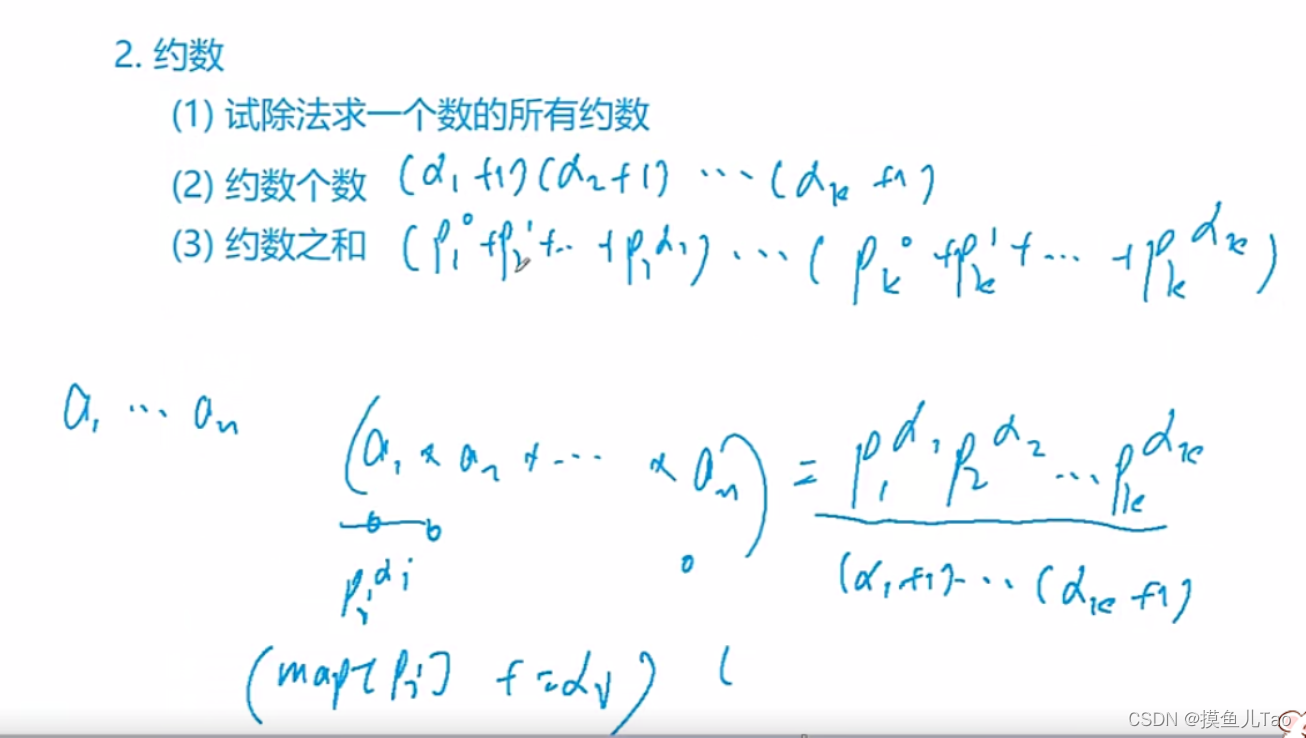 2. 约数
(1) 试除法求一个数的所有约数
(2) 约数个数 (α₁+1)(α₂+1) ⋯ (αₖ+1)
(3) 约数之和 (p₁⁰+p₁¹+⋯+p₁^α₁) ⋯ (pₖ⁰+pₖ¹+⋯+pₖ^αₖ)
a₁ ⋯ aₙ (a₁ × a₂ × ⋯ × aₙ) = p₁^α₁ p₂^α₂ ⋯ pₖ^αₖ
pᵢ^αᵢ (α₁+1)⋯(αₖ+1)
(map[pᵢ] += αᵢ) (
CSDN @摸鱼儿Tao